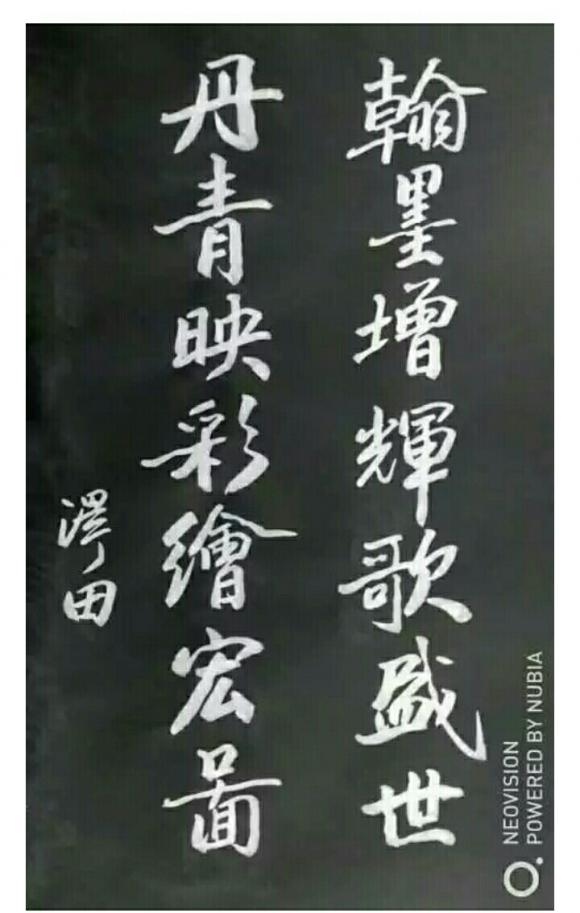 翰墨增輝歌盛世
丹青映彩繪宏啚
澤田
NEOVISION
POWERED BY NUBIA